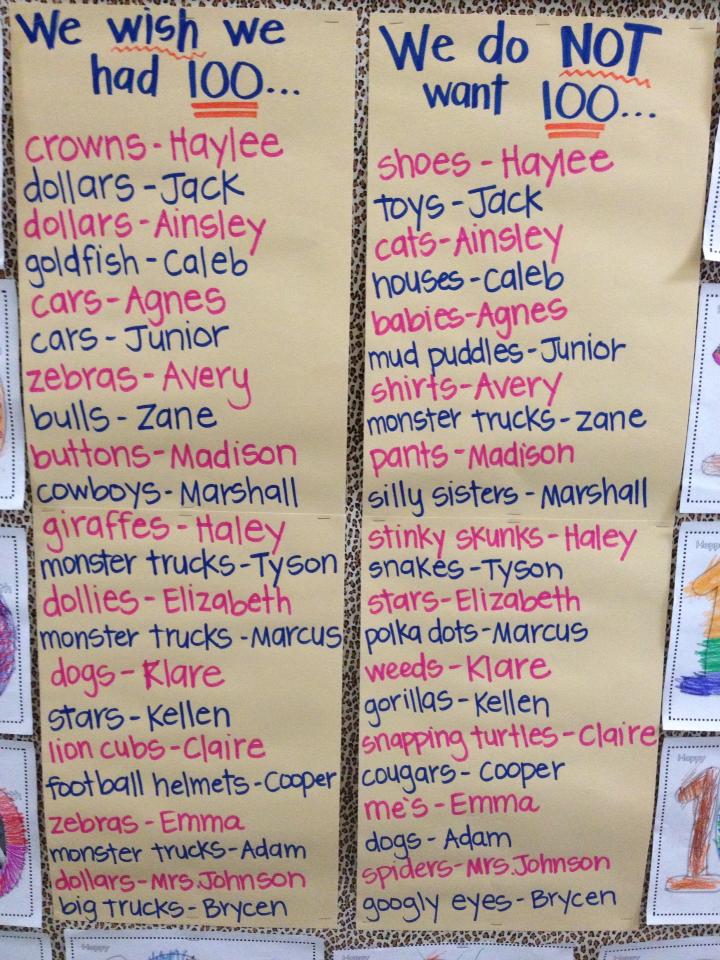 We wish we
had 100...
crowns - Haylee
dollars - Jack
dollars - Ainsley
goldfish - Caleb
cars - Agnes
cars - Junior
zebras - Avery
bulls - Zane
buttons - Madison
cowboys - Marshall
giraffes - Haley
monster trucks - Tyson
dollies - Elizabeth
monster trucks - Marcus
dogs - Klare
stars - Kellen
lion cubs - Claire
football helmets - Cooper
zebras - Emma
monster trucks - Adam
dollars - Mrs. Johnson
big trucks - Brycen
We do NOT
want 100...
shoes - Haylee
toys - Jack
cats - Ainsley
houses - Caleb
babies - Agnes
mud puddles - Junior
shirts - Avery
monster trucks - Zane
pants - Madison
silly sisters - Marshall
stinky skunks - Haley
snakes - Tyson
stars - Elizabeth
polka dots - Marcus
weeds - Klare
gorillas - Kellen
snapping turtles - Claire
cougars - Cooper
me's - Emma
dogs - Adam
spiders - Mrs. Johnson
googly eyes - Brycen
Happy
Happy
Happy
Happy